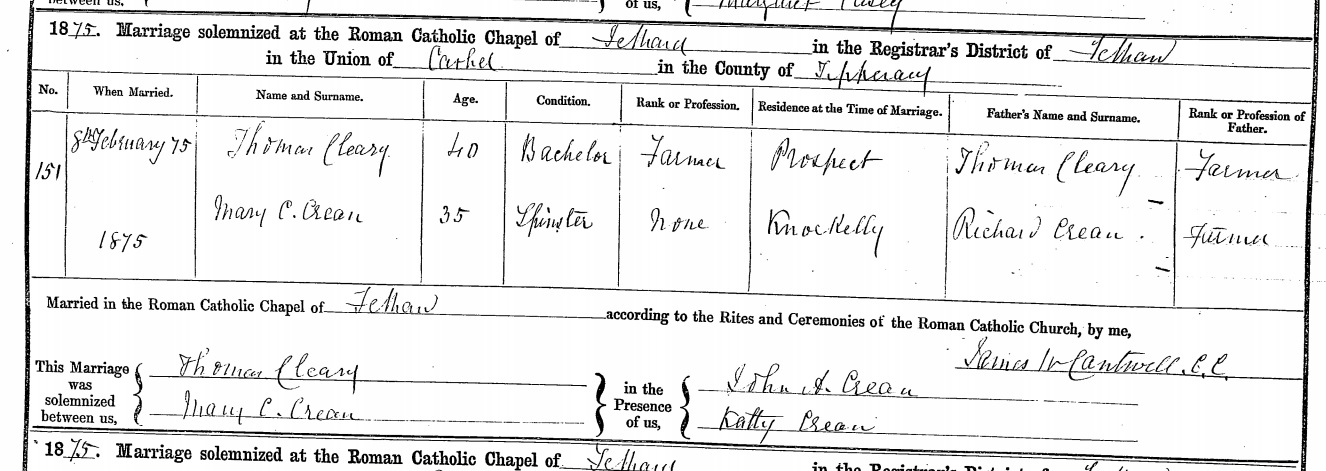 between us,
of us, Margaret Casey
1875. Marriage solemnized at the Roman Catholic Chapel of Fethard in the Registrar's District of Fethard
in the Union of Cashel in the County of Tipperary
No. When Married. Name and Surname. Age. Condition. Rank or Profession. Residence at the Time of Marriage. Father's Name and Surname. Rank or Profession of Father.
151 8th February 75 Thomas Cleary 40 Bachelor Farmer Prospect Thomas Cleary Farmer
1875 Mary C. Crean 35 Spinster None Knockelly Richard Crean. Farmer
Married in the Roman Catholic Chapel of Fethard according to the Rites and Ceremonies of the Roman Catholic Church, by me,
James Cantwell. C.C.
This Marriage was solemnized between us,
Thomas Cleary
Mary C. Crean
in the Presence of us,
John A. Crean
Katty Crean
1875. Marriage solemnized at the Roman Catholic Chapel of Fethard in the Registrar's District of